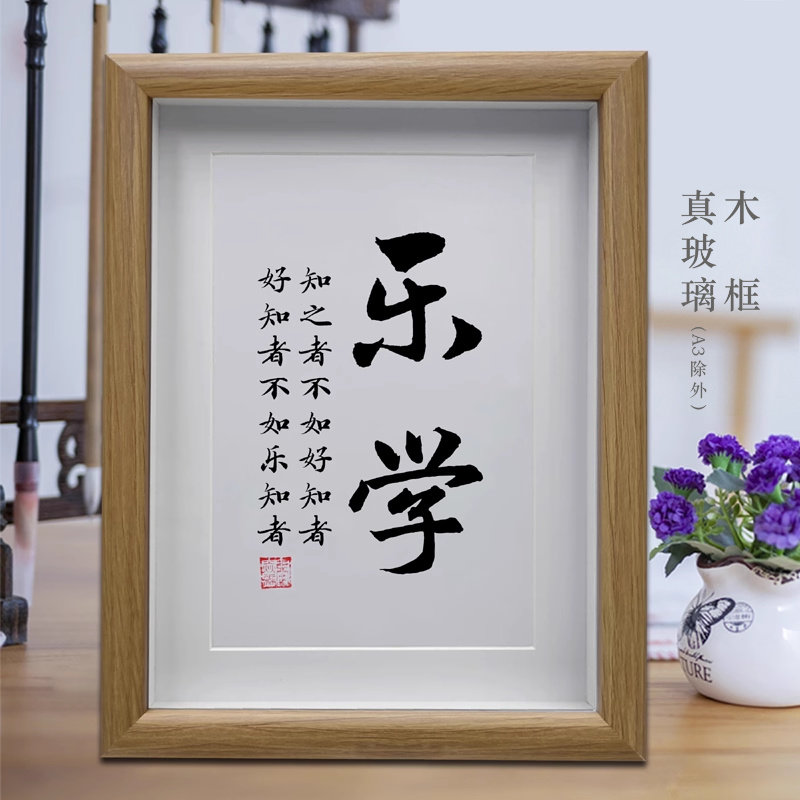 乐学
知之者不如好知者
好知者不如乐知者
木框
真玻璃(A3除外)
TURE